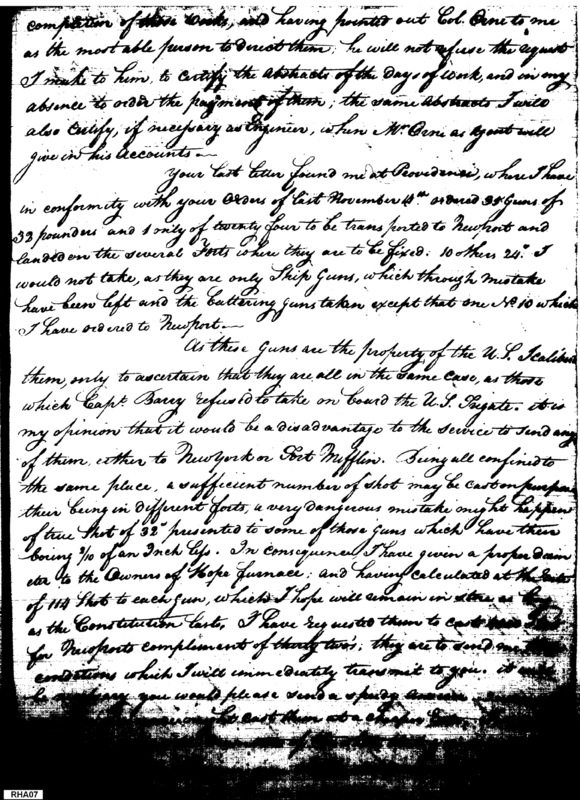 completion of those Works, and having pointed out Col. Orne to me
as the most able person to direct them; he will not refuse the request
I make to him, to certify the Abstracts of the Days of Work, and in my
absence to order the payment of them; the same Abstracts I will
also Certify, if necessary as Engineer, when Mr. Orne as Agent will
give in his Accounts.—
Your last letter found me at Providence, where I have
in conformity with your Orders of last November 4th ordered 35 Guns of
32 pounders and 1 only of twenty four to be transported to Newport and
landed on the several Forts where they are to be fixed: 10 others 24rs I
would not take, as they are only Ship Guns, which through mistake
have been left and the battering Guns taken except that one No 10 which
I have ordered to Newport.—
As these Guns are the property of the U.S. I calibred
them, only to ascertain that they are all in the same case, as those
which Capt. Barry refused to take on board the U.S. Frigate. it is
my opinion that it would be a disadvantage to the service to send any
of them, either to New York or Fort Mifflin. Being all confined to
the same place, a sufficient number of shot may be cast on purpose
their being in different forts, a very dangerous mistake might happen
of true Shot of 32rs presented to some of those Guns which have their
boring 2/10 of an Inch less. In consequence I have given a proper diam
eter to the Owners of Hope Furnace; and having calculated at the
of 114 Shot to each Gun, which I hope will remain in store as long
as the Constitution lasts, I have requested them to cast
for Newports complement of thirty two's; they are to send me
conditions which I will immediately transmit to you. it
be you would please send a speedy
might cast them at a cheaper
RHA07